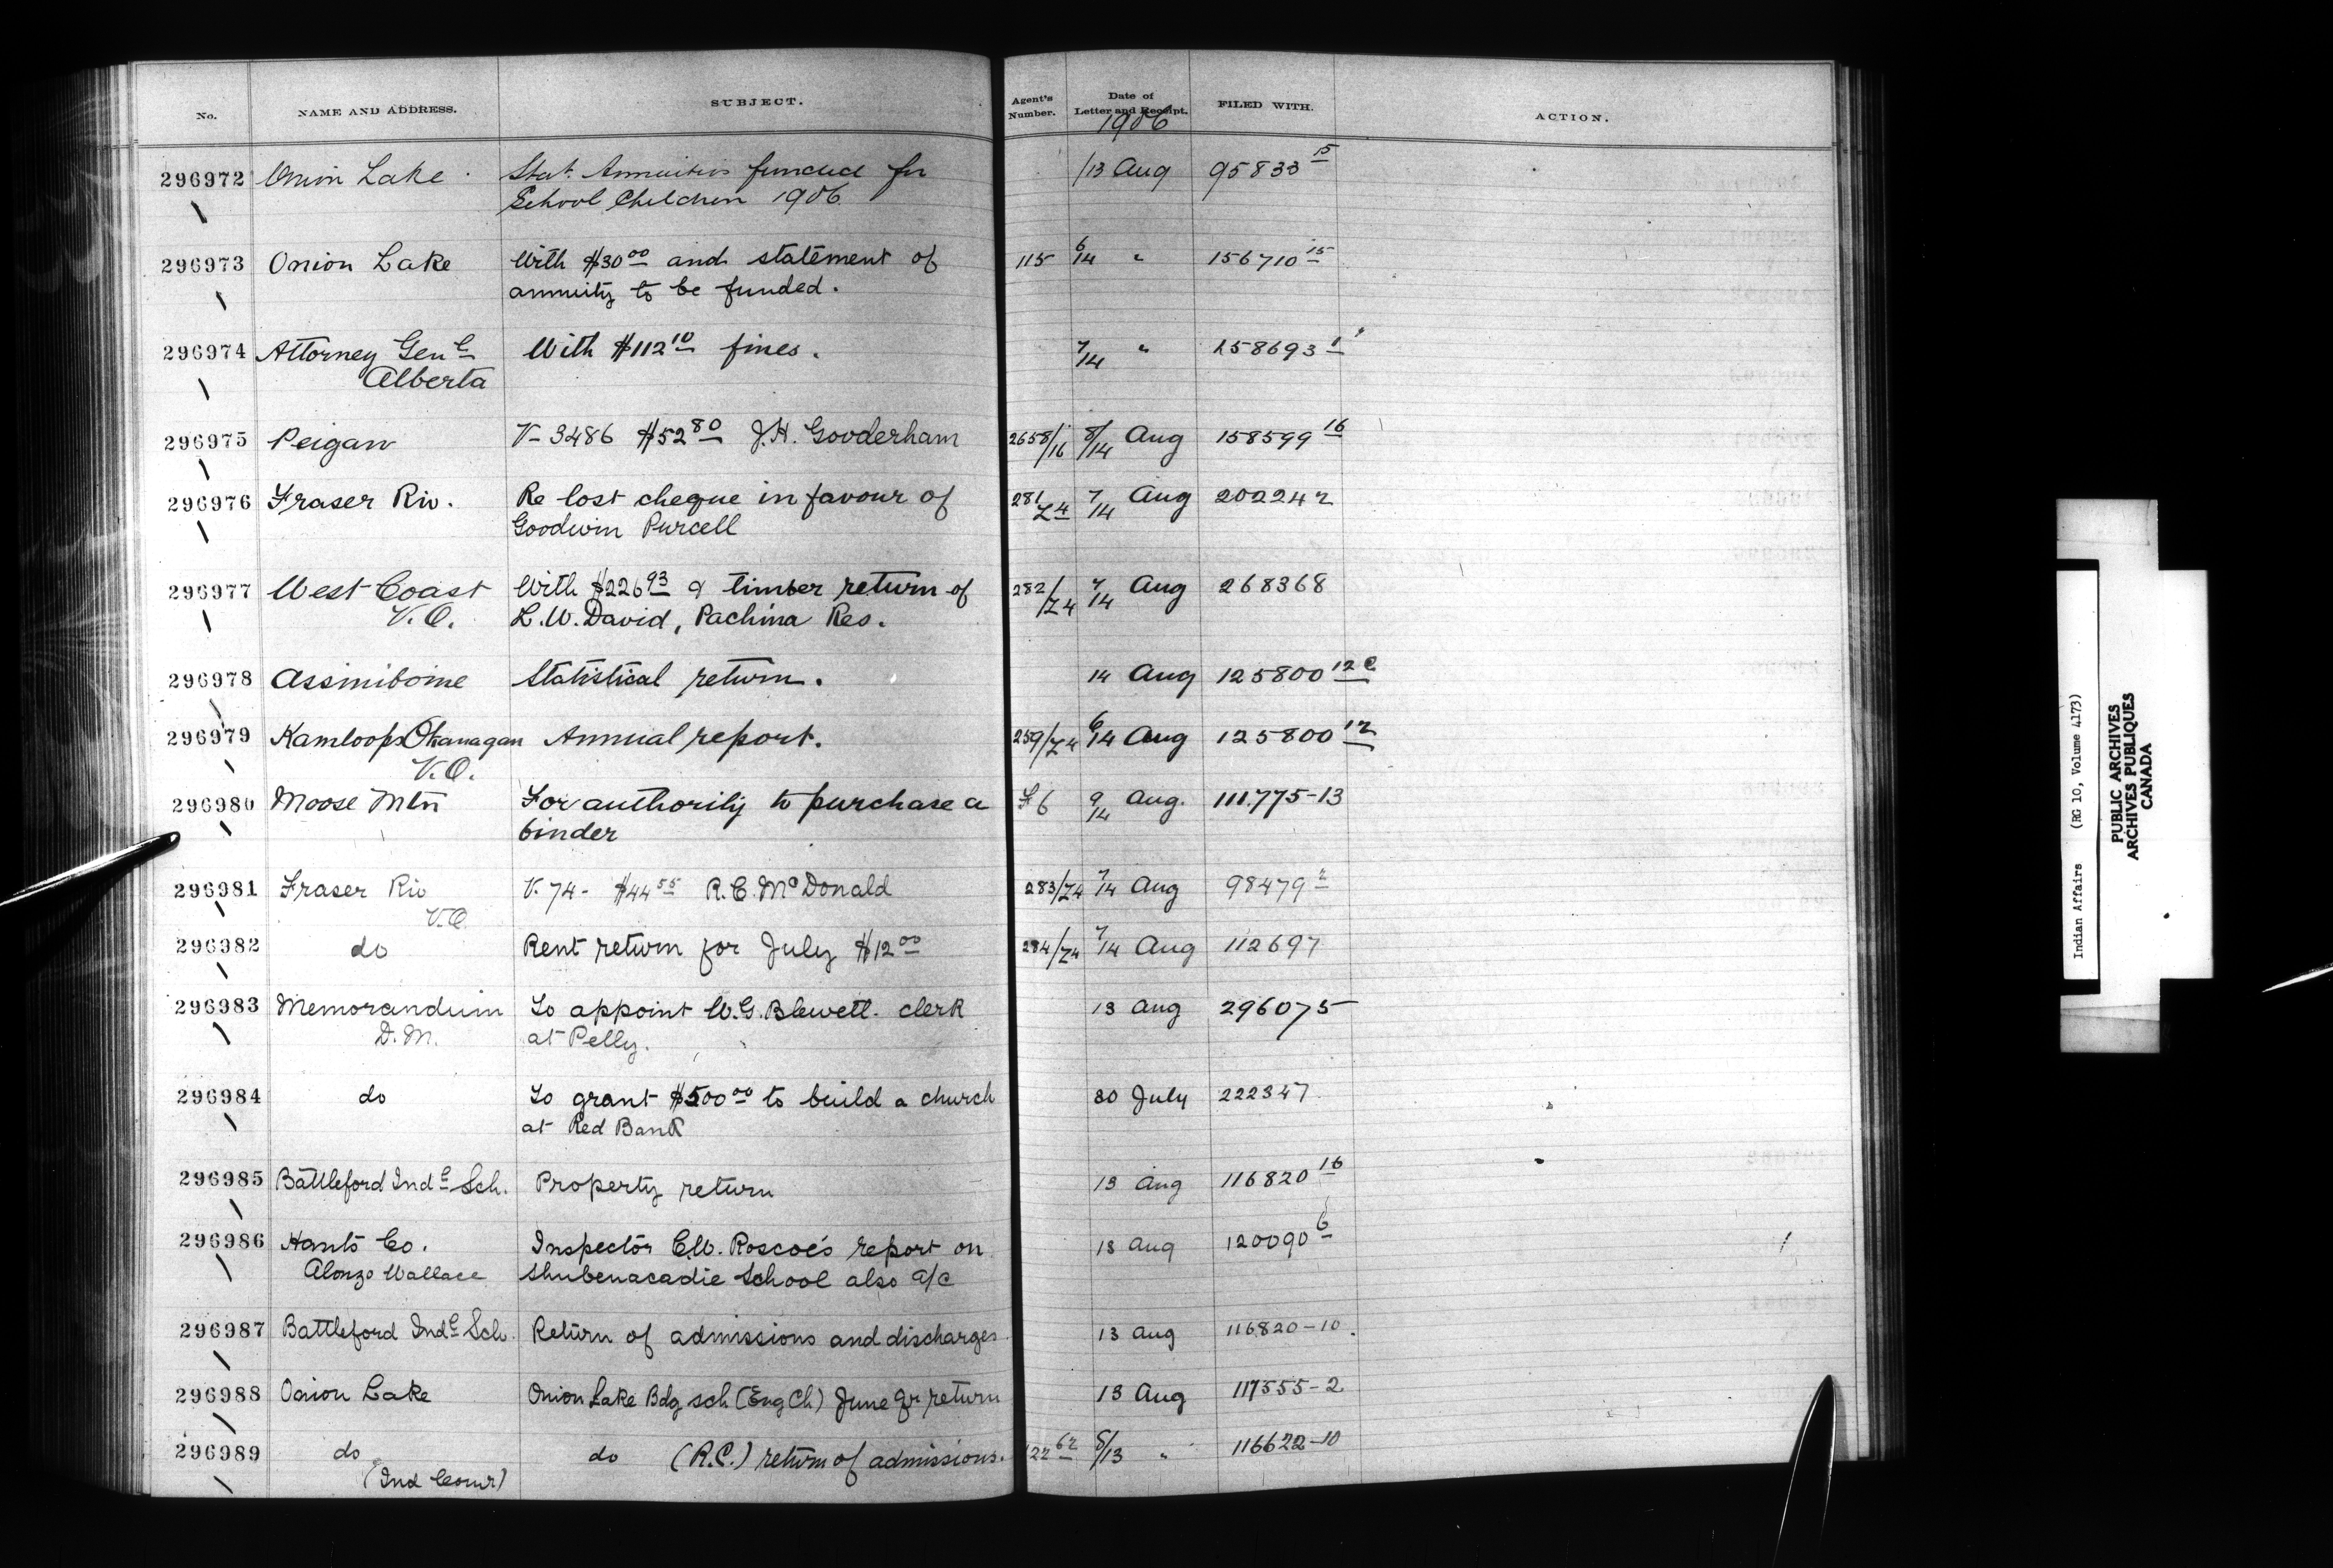 No. NAME AND ADDRESS. SUBJECT. Agent's Number. Date of Letter and Receipt. FILED WITH. ACTION.
1906
296972 Onion Lake Stat. Annuities funded for /13 Aug 95833 15
School Children 1906
296973 Onion Lake With $30 00 and statement of 115 6/14 " 156710 15
annuity to be funded.
296974 Attorney Genl With $112 10 fines. 7/14 " 158693 1
Alberta
296975 Peigan V- 3486 $52 80 J.H. Gooderham 2658/16 8/14 Aug 158599 16
296976 Fraser Riv. Re lost cheque in favour of 281/Z4 7/14 Aug 202242
Goodwin Purcell
296977 West Coast With $226 93 & timber return of 282/Z4 7/14 Aug 268368
V.O. L.W. David, Pachina Res.
296978 Assiniboine Statistical return. 14 Aug 125800 12 C
296979 Kamloops Okanagan Annual report. 259/Z4 6/14 Aug 125800 12
V.O.
296980 Moose Mtn For authority to purchase a F 6 9/14 Aug. 111.775-13
binder
296981 Fraser Riv V. 74- $44 55 R.C. McDonald 283/Z4 7/14 Aug 98479 2
V.O.
296982 do Rent return for July $12 00 284/Z4 7/14 Aug 112697
296983 Memorandum To appoint W.G. Blewett. clerk 13 Aug 296075
D.M. at Pelly.
296984 do To grant $500 00 to build a church 30 July 222347
at Red Bank
296985 Battleford Indl Sch. Property return 13 Aug 116820 16
296986 Hants Co. Inspector C.W. Roscoe's report on 13 Aug 120090 6
Alonzo Wallace Shubenacadie School also a/c
296987 Battleford Indl Sch. Return of admissions and discharges 13 Aug 116820-10.
296988 Onion Lake Onion Lake Bdg sch (Eng Ch) June qr return 13 Aug 117555-2
296989 do do (R.C.) return of admissions. 122 62 8/13 " 116622-10
(Ind Comr)
Indian Affairs (RG 10, Volume 4173)
PUBLIC ARCHIVES
ARCHIVES PUBLIQUES
CANADA